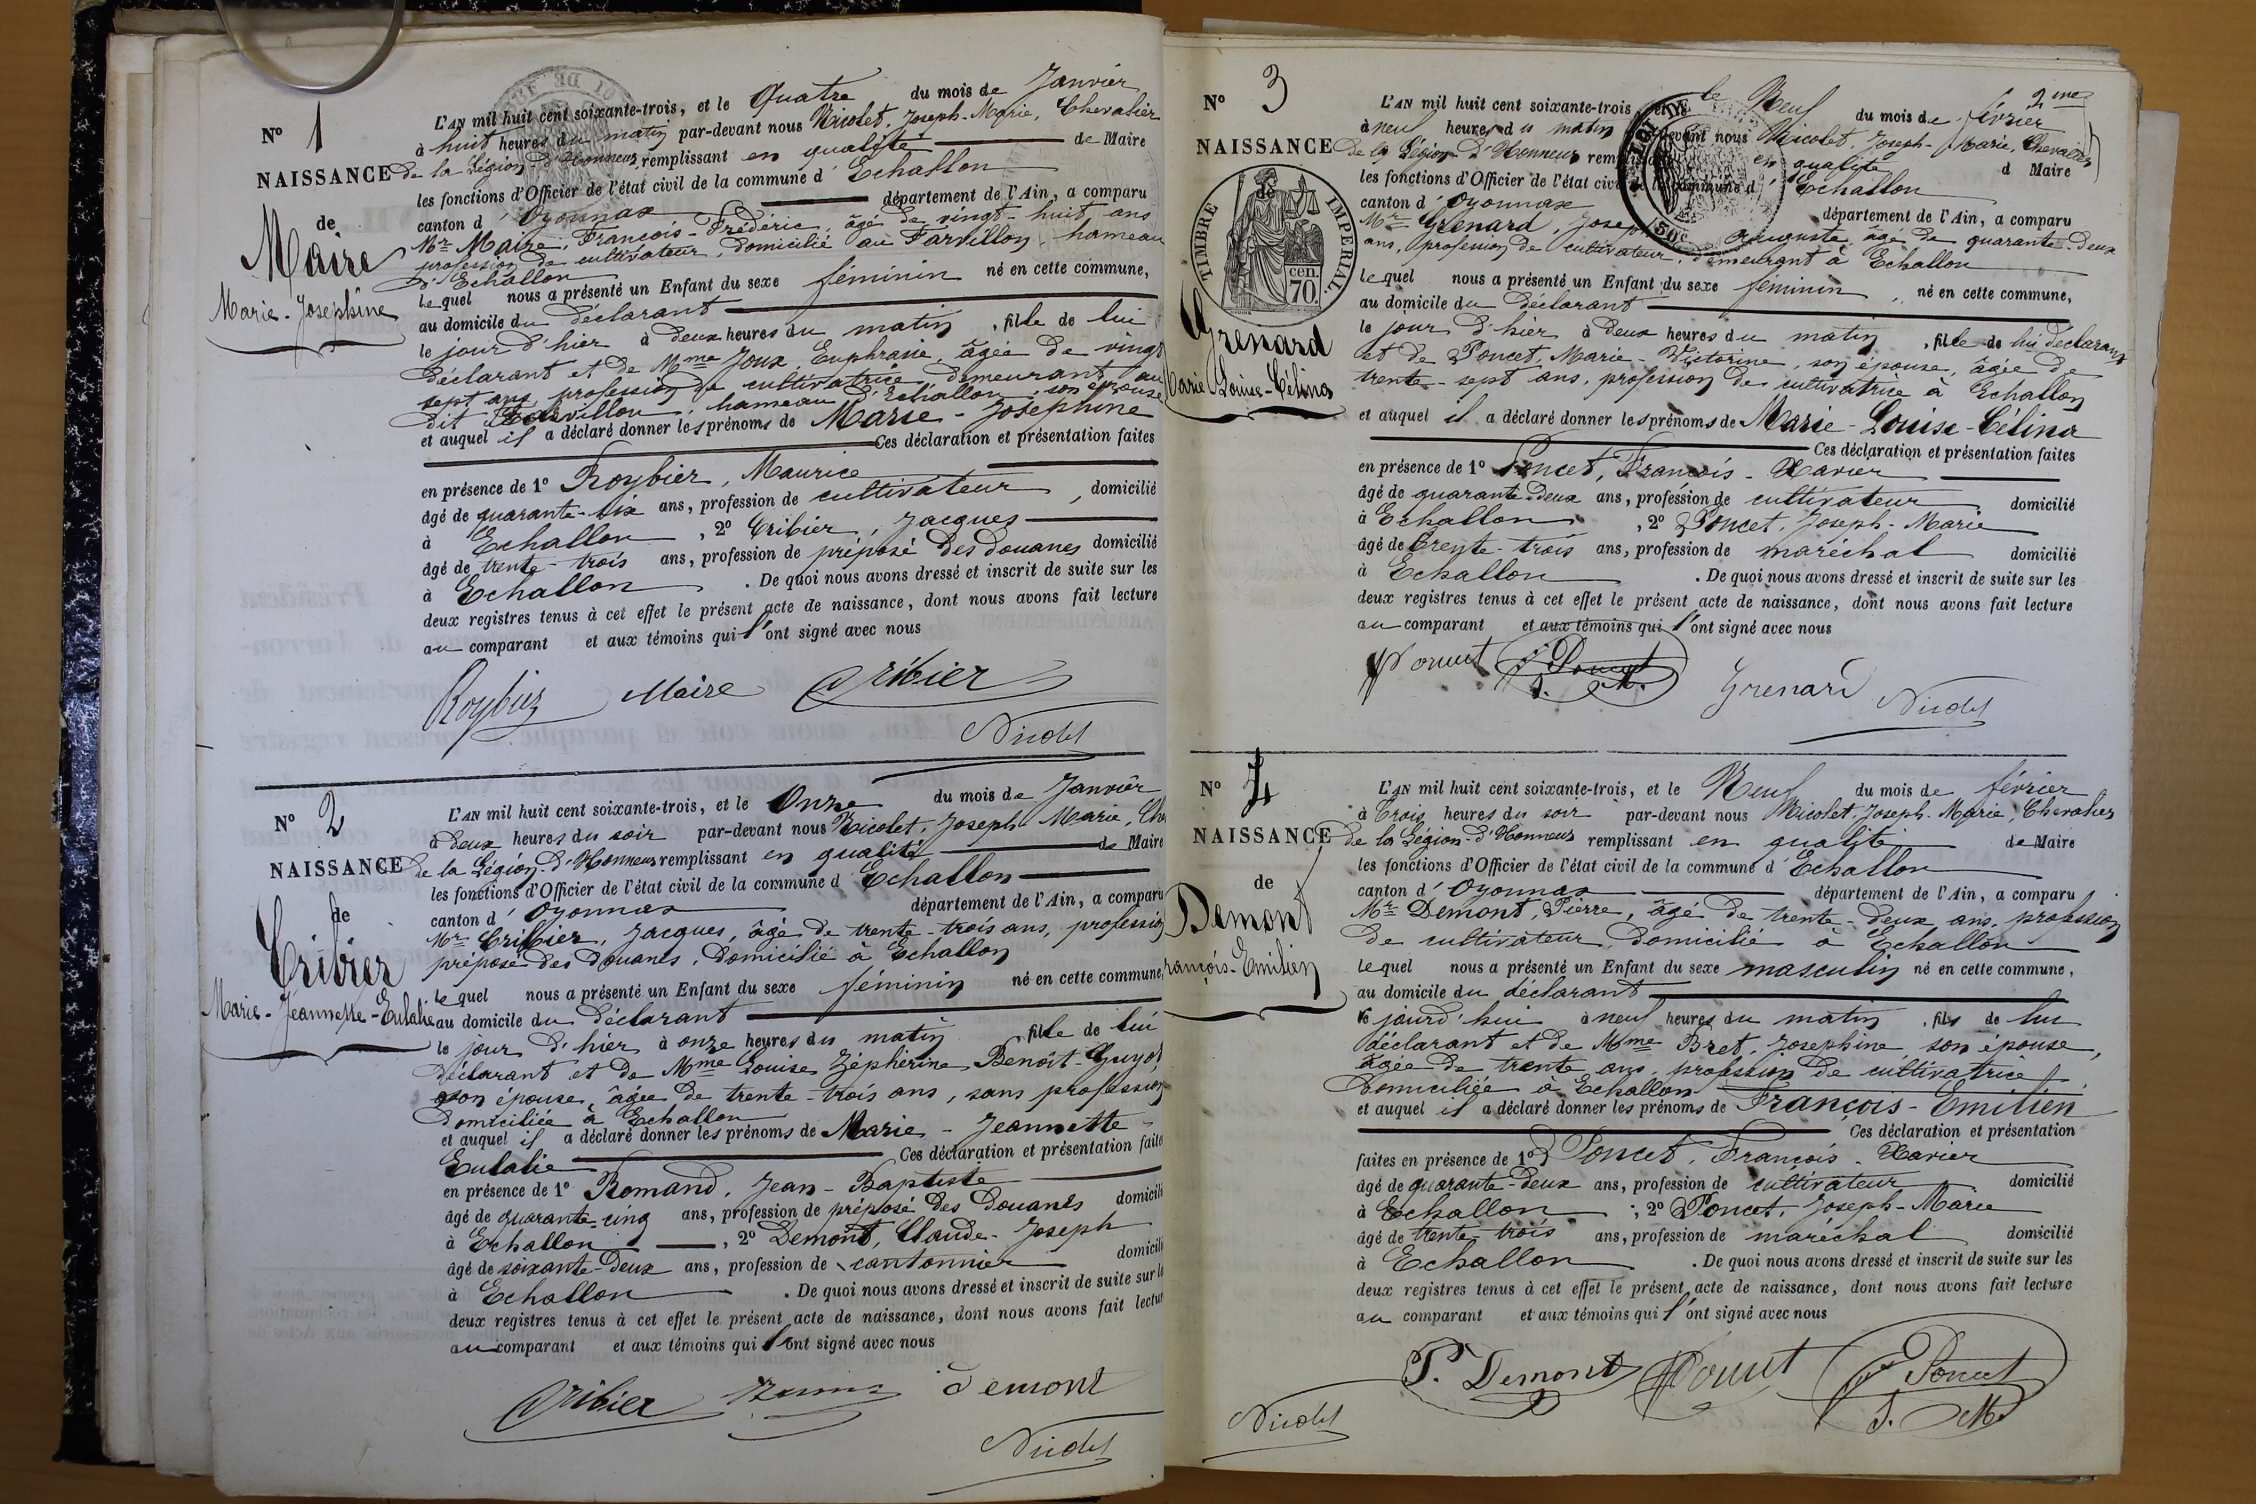 N° 1
NAISSANCE
de
Maire
Marie-Joséphine
L'AN mil huit cent soixante-trois, et le Quatre du mois de Janvier
à huit heures du matin par-devant nous Nicolet, Joseph-Marie, Chevalier
de la Légion d'Honneur remplissant en qualité de Maire
les fonctions d'Officier de l'état civil de la commune d'Echallon
canton d'Oyonnax département de l'Ain, a comparu
Mr Maire, François-Frédéric, âgé de vingt-huit ans
profession de cultivateur, domicilié au Favillon, hameau
d'Echallon
lequel nous a présenté un Enfant du sexe féminin né en cette commune,
au domicile du déclarant
le jour d'hier à deux heures du matin, fille de lui
déclarant et de Mme Joux Euphrasie, âgée de vingt
sept ans, profession de cultivatrice, demeurant au
dit Favillon, hameau d'Echallon, son épouse
et auquel il a déclaré donner les prénoms de Marie-Joséphine
Ces déclaration et présentation faites
en présence de 1° Roybier, Maurice
âgé de quarante-six ans, profession de cultivateur, domicilié
à Echallon, 2° Cribier, Jacques
âgé de trente-trois ans, profession de préposé des douanes domicilié
à Echallon. De quoi nous avons dressé et inscrit de suite sur les
deux registres tenus à cet effet le présent acte de naissance, dont nous avons fait lecture
au comparant et aux témoins qui l'ont signé avec nous
Roybier Maire Cribier
Nicolet
N° 2
NAISSANCE
de
Cribier
Marie-Jeannette-Eulalie
L'AN mil huit cent soixante-trois, et le Onze du mois de Janvier
à deux heures du soir par-devant nous Nicolet, Joseph-Marie, Che
de la Légion-d'Honneur remplissant en qualité de Maire
les fonctions d'Officier de l'état civil de la commune d'Echallon
canton d'Oyonnax département de l'Ain, a comparu
Mr Cribier, Jacques, âgé de trente-trois ans, profession
préposé des douanes, domicilié à Echallon
lequel nous a présenté un Enfant du sexe féminin né en cette commune,
au domicile du déclarant
le jour d'hier à onze heures du matin fille de lui
déclarant et de Mme Louise Zéphérine Benoît-Guyot
son épouse, âgée de trente-trois ans, sans profession
domiciliée à Echallon
et auquel il a déclaré donner les prénoms de Marie-Jeannette-
Eulalie Ces déclaration et présentation faites
en présence de 1° Romand, Jean-Baptiste
âgé de quarante-cinq ans, profession de préposé des Douanes domicilié
à Echallon, 2° Demont, Claude-Joseph
âgé de soixante-deux ans, profession de cantonnier domicilié
à Echallon. De quoi nous avons dressé et inscrit de suite sur le
deux registres tenus à cet effet le présent acte de naissance, dont nous avons fait lectur
au comparant et aux témoins qui l'ont signé avec nous
Cribier Demont
Nicolet
N° 3
NAISSANCE
de
TIMBRE IMPERIAL.
cen. 70.
Grenard
Marie Louise-Célina
2me
L'AN mil huit cent soixante-trois, et le Neuf du mois de février
à neuf heures du matin par-devant nous Nicolet, Joseph-Marie, Chevalier
de la Légion-d'Honneur remplissant en qualité d Maire
les fonctions d'Officier de l'état civil de la commune d'Echallon
canton d'Oyonnax département de l'Ain, a comparu
Mr Grenard, Joseph Auguste, âgé de quarante-deux
ans, profession de cultivateur, demeurant à Echallon
50c
lequel nous a présenté un Enfant du sexe féminin, né en cette commune,
au domicile du déclarant
le jour d'hier à deux heures du matin, fille de lui déclarant
et de Poncet, Marie-Victorine, son épouse, âgée de
trente-sept ans, profession de cultivatrice à Echallon
et auquel il a déclaré donner les prénoms de Marie-Louise-Célina
Ces déclaration et présentation faites
en présence de 1° Poncet, François-Xavier
âgé de quarante-deux ans, profession de cultivateur domicilié
à Echallon, 2° Poncet, Joseph-Marie
âgé de trente-trois ans, profession de maréchal domicilié
à Echallon. De quoi nous avons dressé et inscrit de suite sur les
deux registres tenus à cet effet le présent acte de naissance, dont nous avons fait lecture
au comparant et aux témoins qui l'ont signé avec nous
Poncet Poncet J. M. Grenard Nicolet
N° 4
NAISSANCE
de
Demont
François-Emilien
L'AN mil huit cent soixante-trois, et le Neuf du mois de février
à trois heures du soir par-devant nous Nicolet, Joseph-Marie, Chevalier
de la Légion-d'Honneur remplissant en qualité de Maire
les fonctions d'Officier de l'état civil de la commune d'Echallon
canton d'Oyonnax département de l'Ain, a comparu
Mr Demont, Pierre, âgé de trente-deux ans, profession
de cultivateur, domicilié à Echallon
lequel nous a présenté un Enfant du sexe masculin né en cette commune,
au domicile du déclarant
le jourd'hui à neuf heures du matin, fils de lui
déclarant et de Mme Bret, Josephine son épouse,
âgée de trente ans, profession de cultivatrice
domiciliée à Echallon
et auquel il a déclaré donner les prénoms de François-Emilien
Ces déclaration et présentation
faites en présence de 1° Poncet, François-Xavier
âgé de quarante-deux ans, profession de cultivateur domicilié
à Echallon; 2° Poncet, Joseph-Marie
âgé de trente-trois ans, profession de maréchal domicilié
à Echallon. De quoi nous avons dressé et inscrit de suite sur les
deux registres tenus à cet effet le présent acte de naissance, dont nous avons fait lecture
au comparant et aux témoins qui l'ont signé avec nous
P. Demont Poncet Poncet J. M.
Nicolet